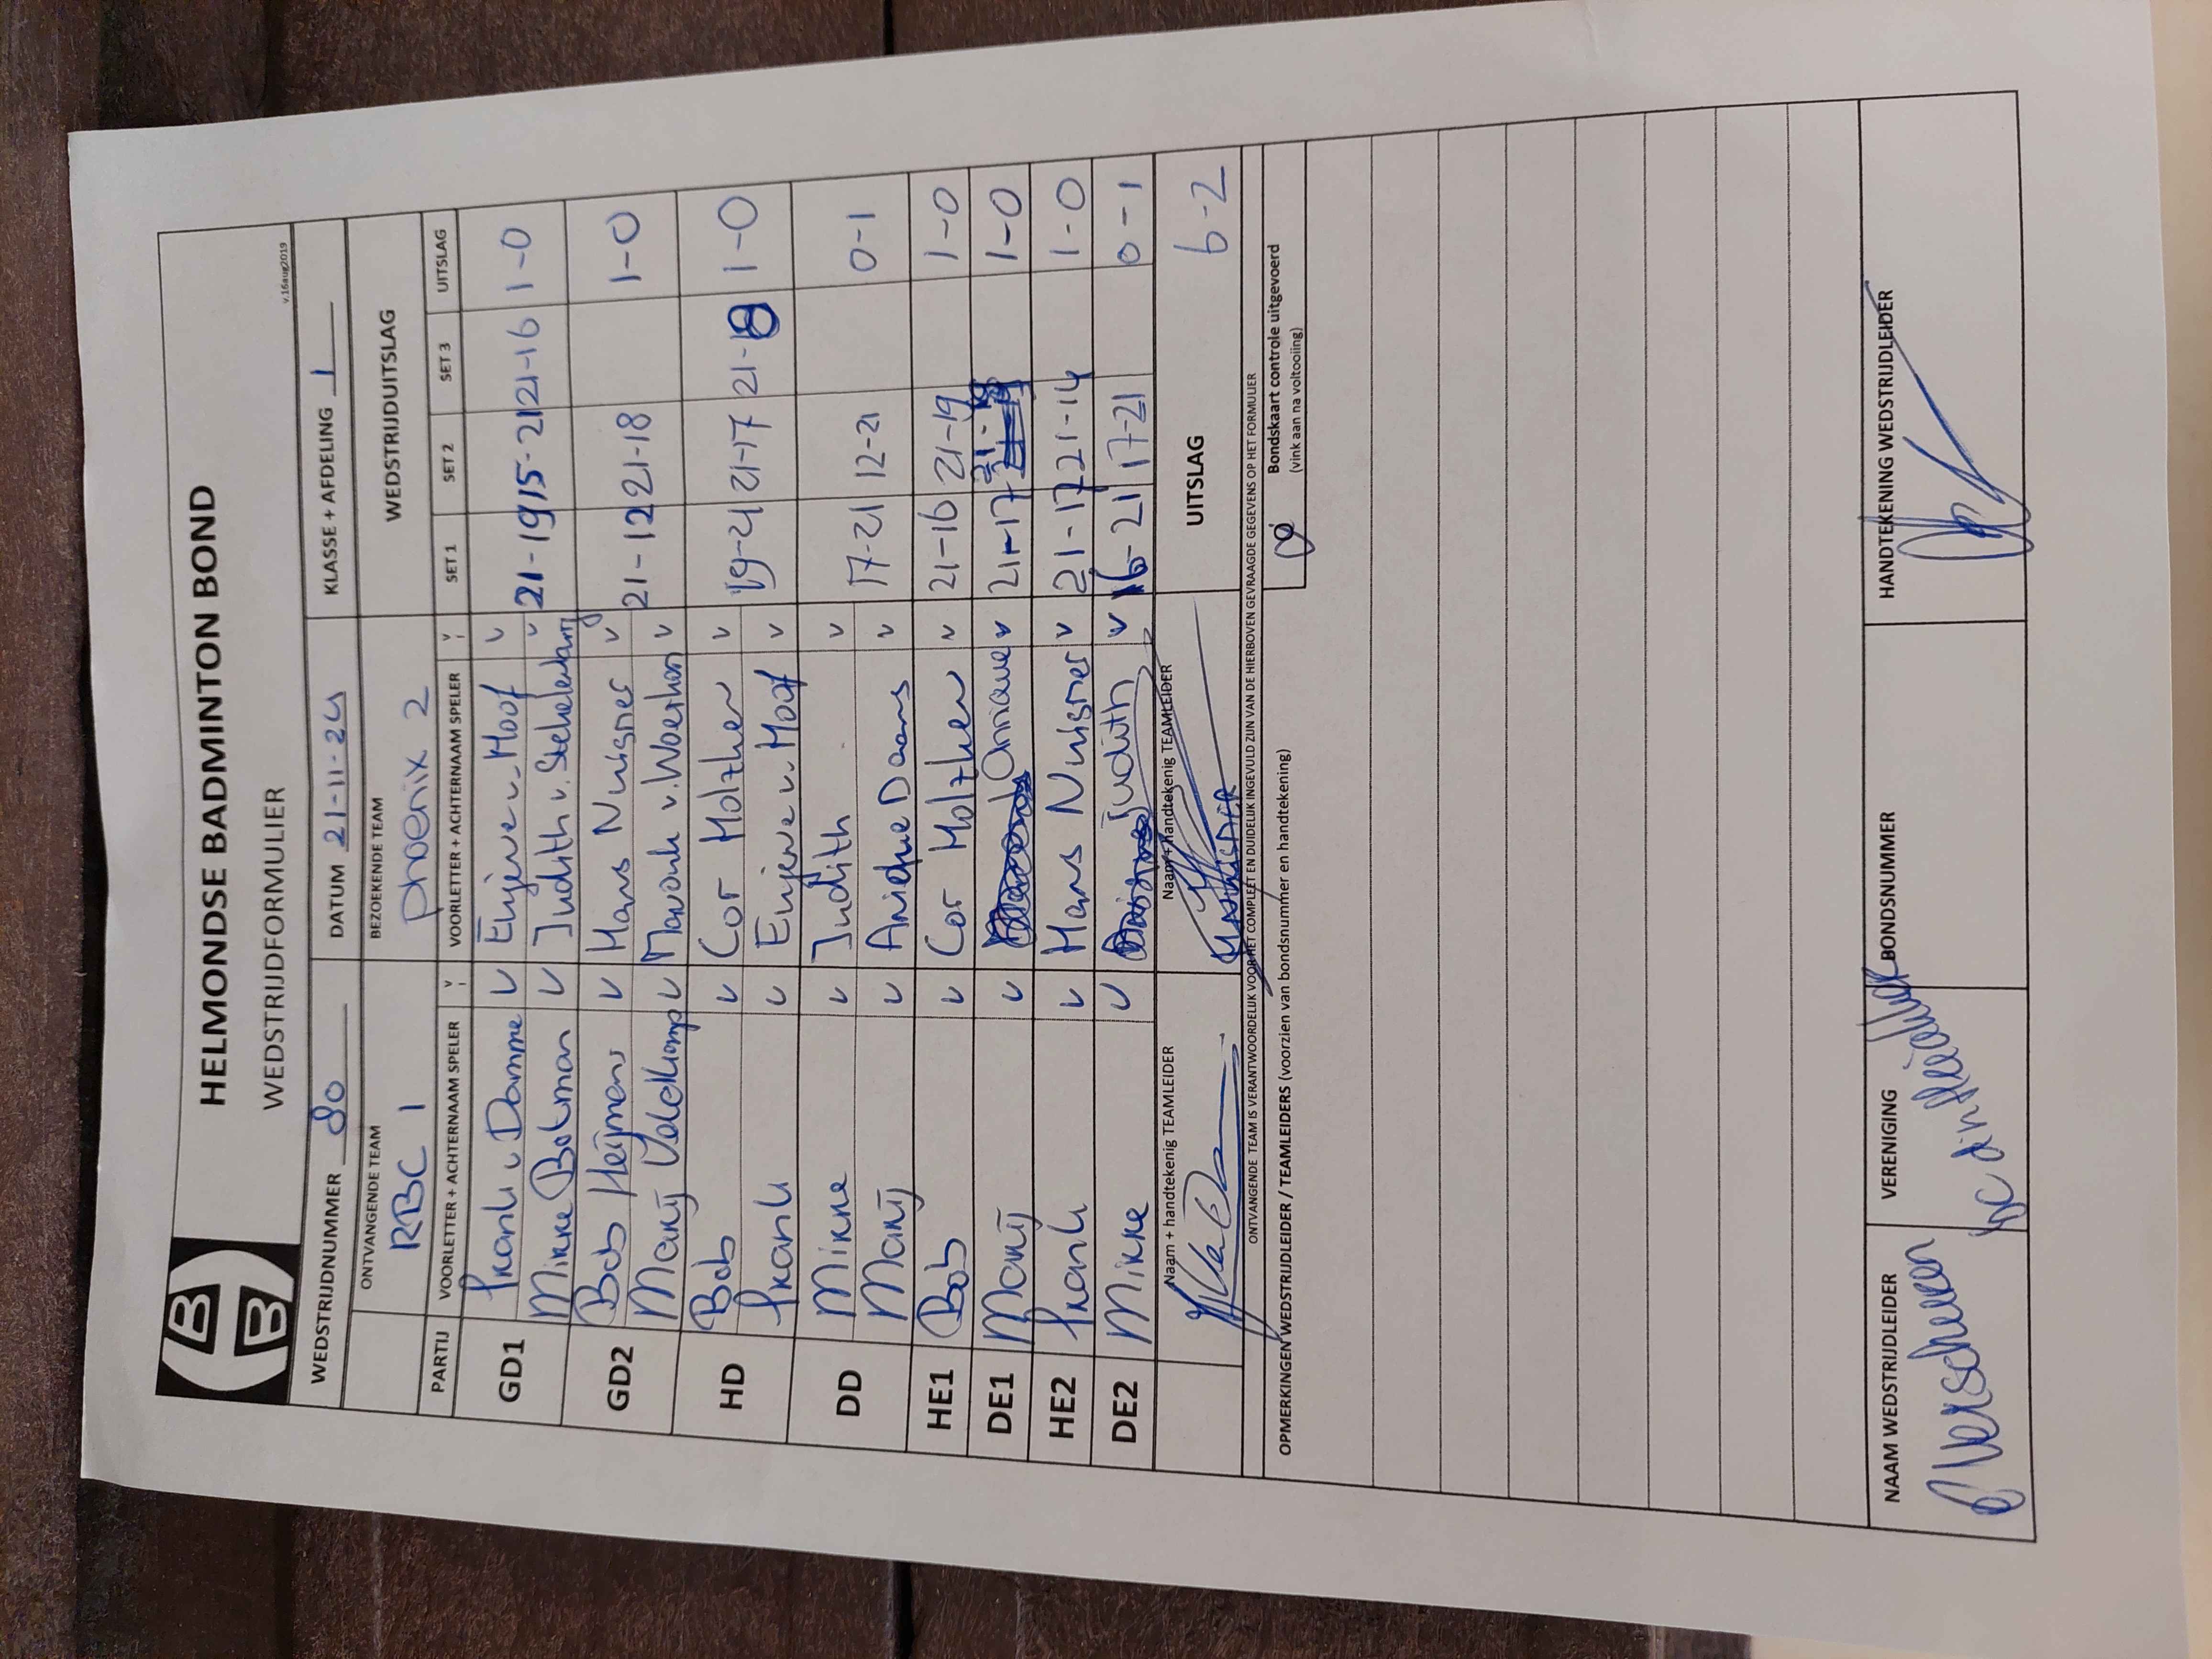 HELMONDSE BADMINTON BOND
WEDSTRIJDFORMULIER
v.16aug2019
WEDSTRIJDNUMMER 80 DATUM 21-11-24 KLASSE + AFDELING 1
ONTVANGENDE TEAM BEZOEKENDE TEAM WEDSTRIJDUITSLAG
RBC 1 phoenix 2
PARTIJ VOORLETTER + ACHTERNAAM SPELER V VOORLETTER + ACHTERNAAM SPELER V SET 1 SET 2 SET 3 UITSLAG
GD1 Frank v Damme v v. Hoof v 21-19 15-21 21-16 1-0
Minke Bolman v Judith v. v
GD2 Bob Heijmans v Hans v 21-12 21-18 1-0
Marij Veldkamp v v. v
HD Bob v Cor Holther v 19-21 21-17 21-18 1-0
Frank v v. Hoof v
DD Minke v Judith v 17-21 12-21 0-1
Marij v Daams v
HE1 Bob v Cor Holther v 21-16 21-19 1-0
DE1 Marij v v 21-17 1-0
HE2 Frank v Hans v 21-17 21-14 1-0
DE2 Minke v Judith v 16-21 17-21 0-1
Naam + handtekenig TEAMLEIDER Naam + handtekenig TEAMLEIDER UITSLAG 6-2
ONTVANGENDE TEAM IS VERANTWOORDELIJK VOOR HET COMPLEET EN DUIDELIJK INGEVULD ZIJN VAN DE HIERBOVEN GEVRAAGDE GEGEVENS OP HET FORMULIER
OPMERKINGEN WEDSTRIJDLEIDER / TEAMLEIDERS (voorzien van bondsnummer en handtekening) Bondskaart controle uitgevoerd
(vink aan na voltooiing)
NAAM WEDSTRIJDLEIDER VERENIGING BONDSNUMMER HANDTEKENING WEDSTRIJDLEIDER